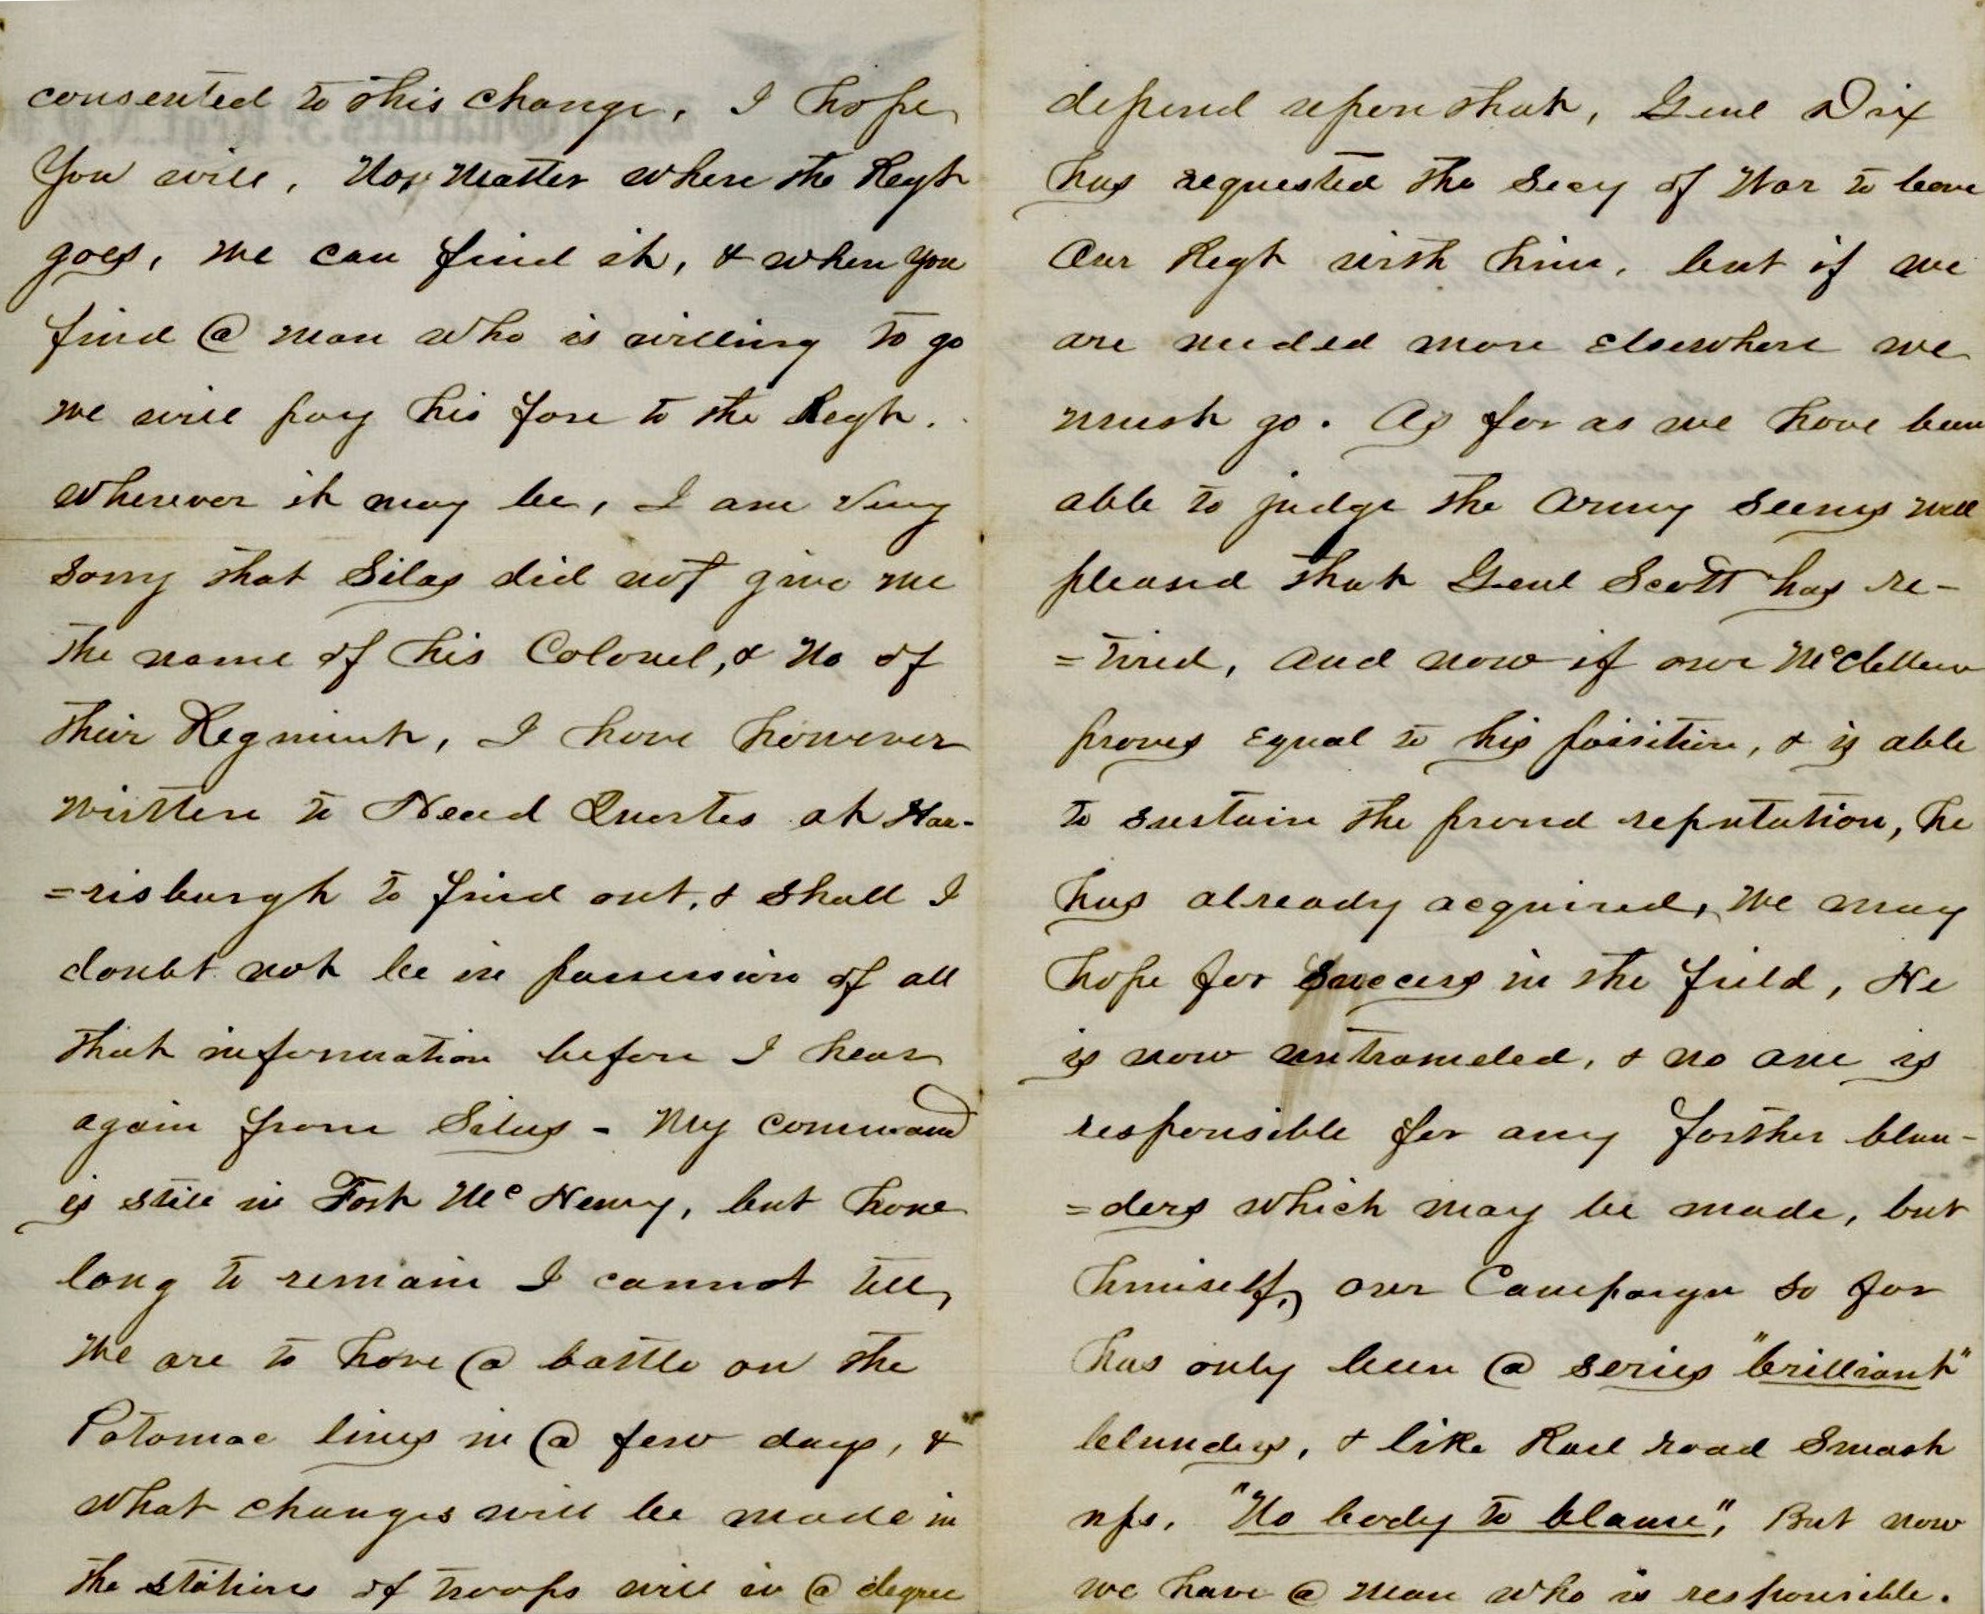 consented to this change, I hope
You will, No Matter where the Regt
goes, we can find it, & when you
find @ man who is willing to go
we will pay his fare to the Regt.
wherever it may be, I am Very
sorry that Silas did not give me
the name of his Colonel, & No of
their Regmint, I have however
written to Head Quartes at Har-
=risburgh to find out, & shall I
doubt not be in possession of all
that information before I hear
again from Silas - My command
is still in Fort McHenry, but how
long to remain I cannot tell,
We are to have @ battle on the
Potomac lines in @ few days, &
what changes will be made in
the stations of troops will in @ degree
depend upon that, Genl Dix
has requested the Secy of War to leave
Our Regt with him, but if we
are needed more elsewhere we
must go. As far as we have been
able to judge the Army seems well
pleased that Genl Scott has re-
=tired, and now if our McClellan
proves Equal to his possition, & is able
to sustain the proud reputation, he
has already acquired, We may
hope for success in the field, He
is now untrameled, & no one is
responsible for any farther blun-
=ders which may be made, but
himself, our Campaign so far
has only been @ series "brilliant"
blunders, & like Rail road Smash
ups, "No body to blame", But now
we have @ man who is responsible.